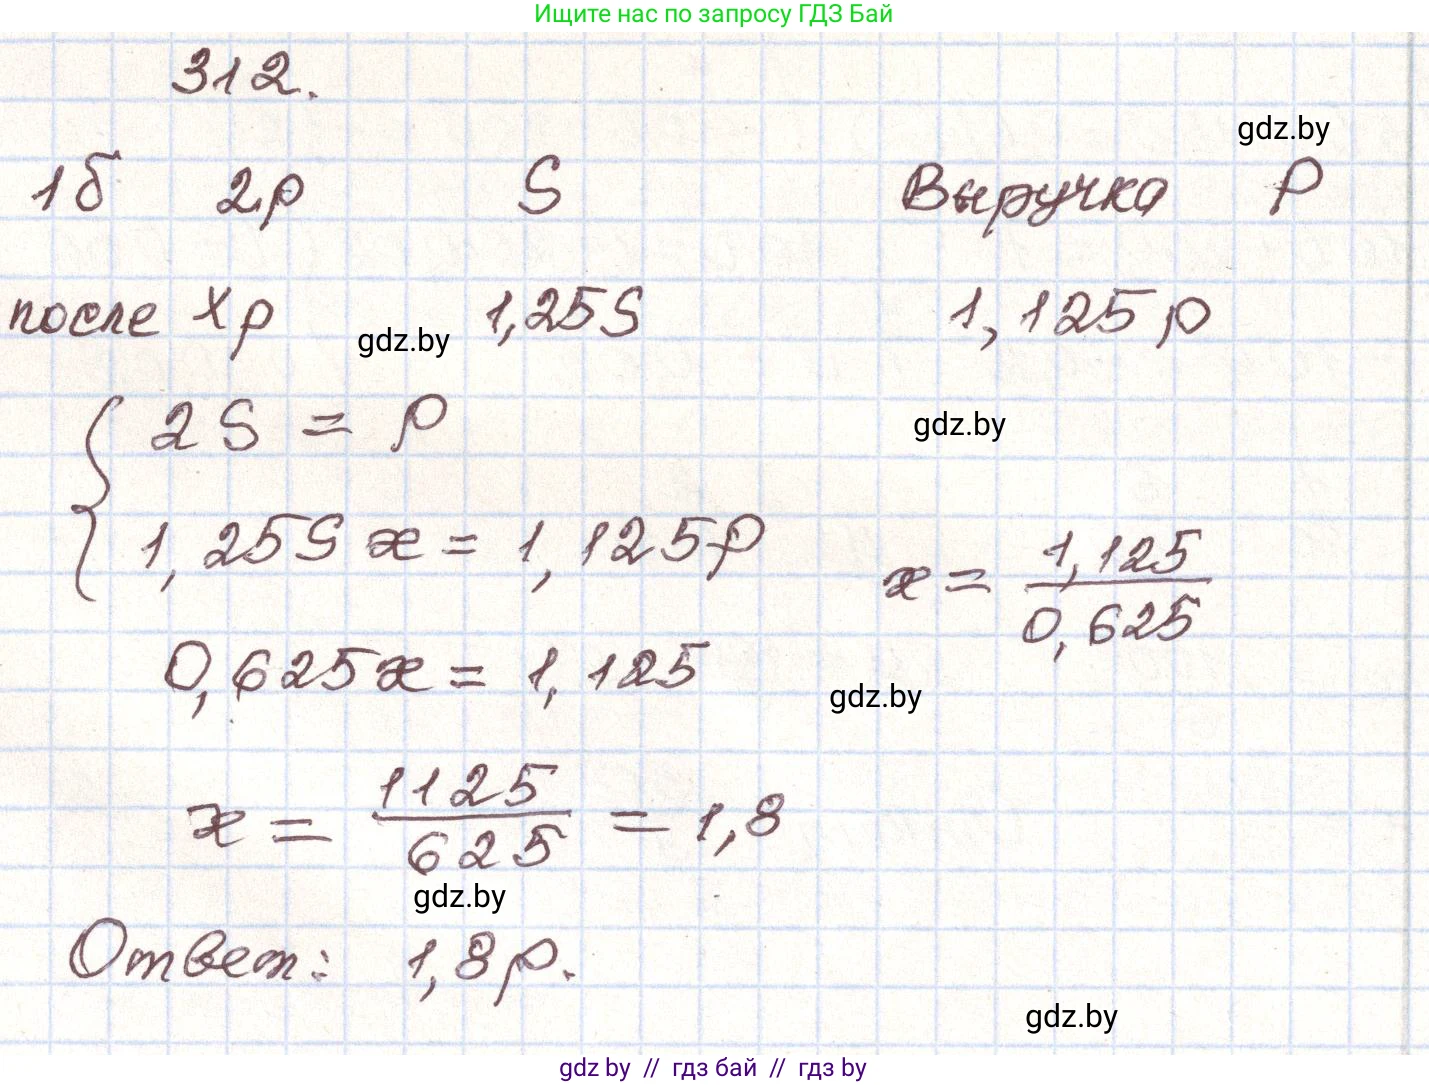 Ищите нас по запросу ГДЗ Бай
312.
gdz.by
1б 2р S Выручка P
после xр 1,25S 1,125p
gdz.by
{ 2S = P
gdz.by
1,25S x = 1,125p
x = 1,125 / 0,625
0,625x = 1,125
gdz.by
x = 1125 / 625 = 1,8
gdz.by
Ответ: 1,8р.
gdz.by
gdz.by // гдз бай // гдз by